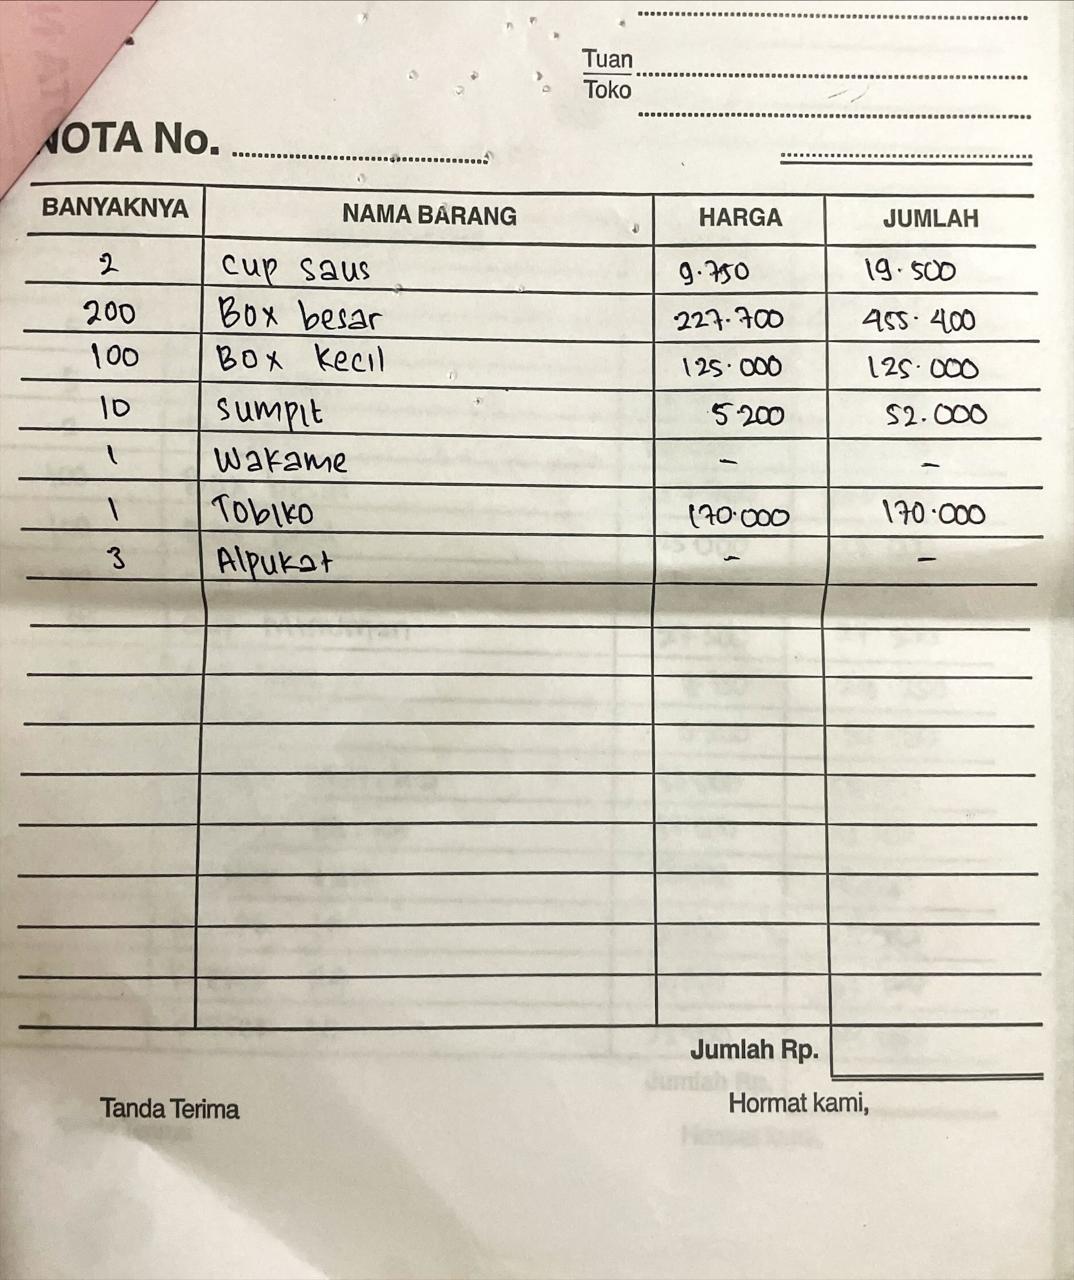 Tuan
Toko
NOTA No.
BANYAKNYA NAMA BARANG HARGA JUMLAH
2 cup saus 9.750 19.500
200 Box besar 227.700 455.400
100 Box kecil 125.000 125.000
10 sumpit 5 200 52.000
1 Wakame - -
1 Tobiko 170.000 170.000
3 Alpukat - -
Jumlah Rp.
Tanda Terima Hormat kami,